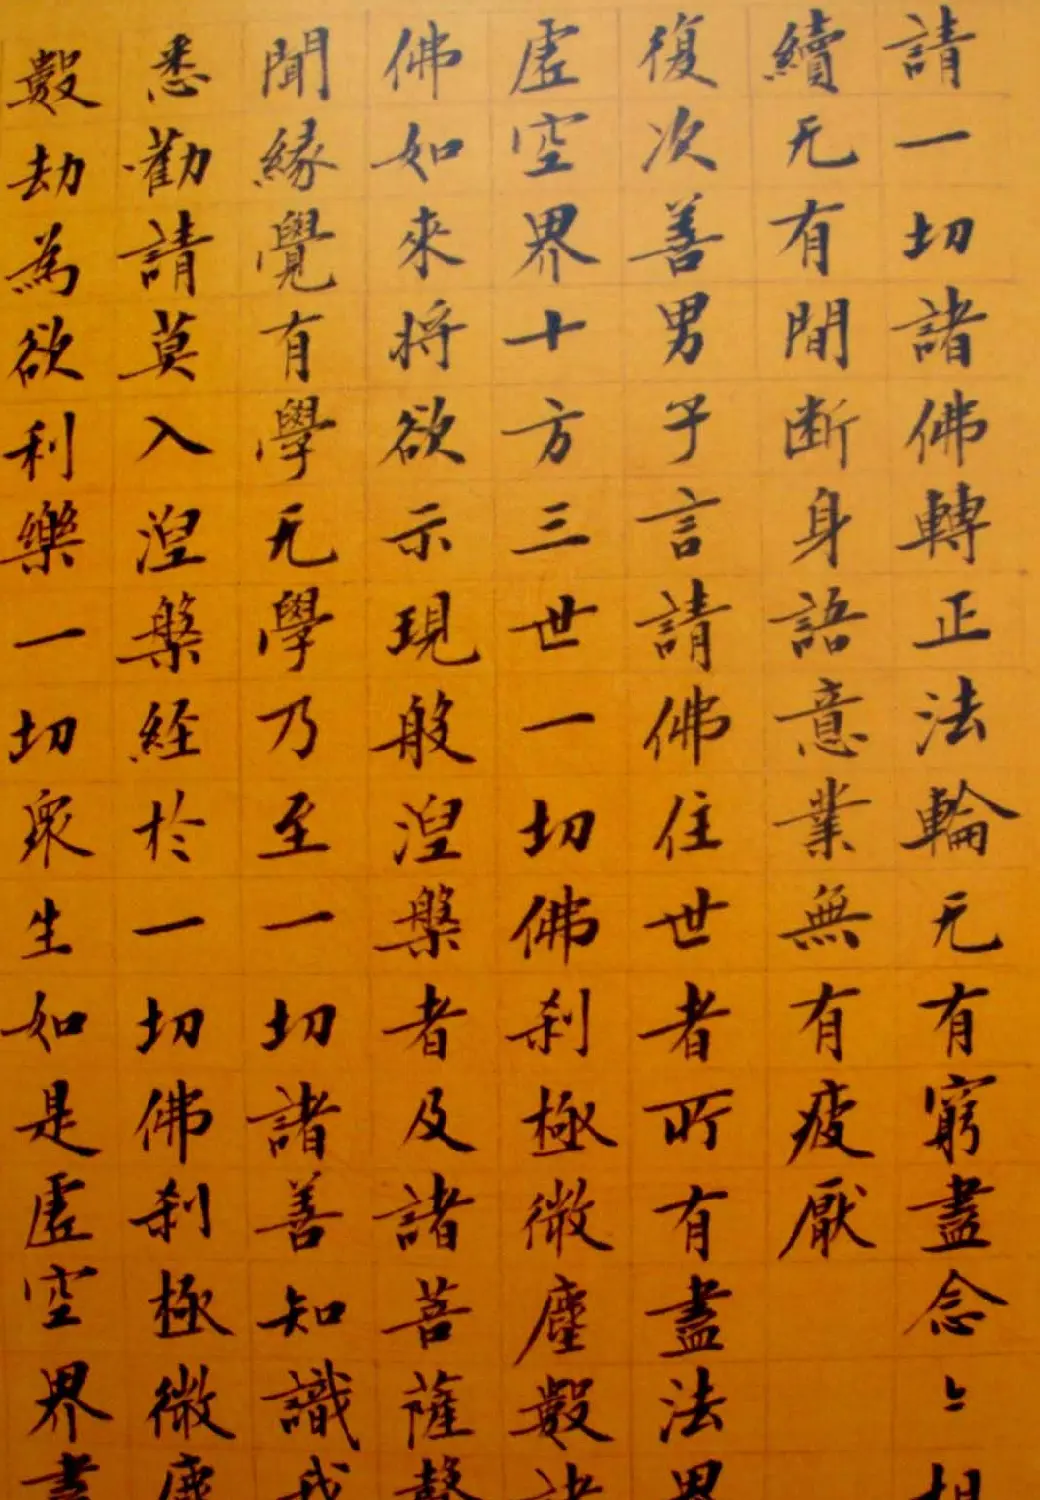 請一切諸佛轉正法輪无有窮盡念〻相
續无有間断身語意業無有疲厭
復次善男子言請佛住世者所有盡法界
虛空界十方三世一切佛刹極微塵數諸
佛如來將欲示現般涅槃者及諸菩薩聲
聞緣覺有學无學乃至一切諸善知識我
悉勸請莫入涅槃経於一切佛刹極微塵
數劫為欲利樂一切衆生如是虛空界盡